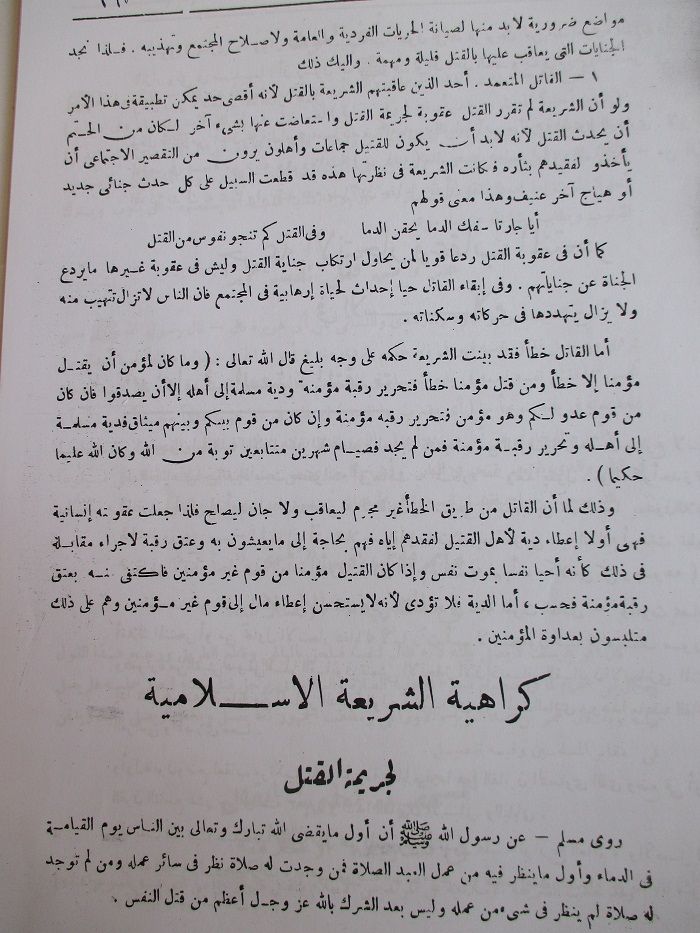 مواضع ضرورية لابد منها لصيانة الحريات الفردية والعامة ولاصلاح المجتمع وتهذيبه . فلذا نجد
الجنايات التى يعاقب عليها بالقتل قليلة ومهمة . واليك ذلك
١ — القاتل المتعمد . أحد الذين عاقبتهم الشريعة بالقتل لأنه أقصى حد يمكن تطبيقة فى هذا الأمر
ولو أن الشريعة لم تقرر القتل عقوبة لجريمة القتل واستعاضت عنها بشىء آخر لكان من الحتم
أن يحدث القتل لأنه لابد أن يكون للقتيل جماعات وأهلون يرون من التقصير الاجتماعى أن
يأخذو لفقيدهم بثأره فكانت الشريعة فى نظريتها هذه قد قطعت السبيل على كل حدث جنائى جديد
أو هياج آخر عنيف وهذا معنى قولهم
أيا جارتا سفك الدما يحقن الدما وفى القتل كم تنجو نفوس من القتل
كما أن فى عقوبة القتل ردعا قويا لمن يحاول ارتكاب جناية القتل وليش فى عقوبة غيرها مايردع
الجناة عن جناياتهم . وفى إبقاء القاتل حيا إحداث لحياة إرهابية فى المجتمع فان الناس لاتزال تتهيب منه
ولا يزال يتهددها فى حركاته وسكناته .
أما القاتل خطأ فقد بينت الشريعة حكمه على وجه بليغ قال الله تعالى : ( وما كان لمؤمن أن يقتل
مؤمنا إلا خطأ ومن قتل مؤمنا خطأ فتحرير رقبة مؤمنه ودية مسلمة إلى أهله إلا أن يصدقوا فان كان
من قوم عدو لكم وهو مؤمن فتحرير رقبه مؤمنة وإن كان من قوم بينكم وبينهم ميثاق فدية مسلمة
إلى أهله وتحرير رقبة مؤمنة فمن لم يجد فصيام شهرين متتابعين توبة من الله وكان الله عليما
حكيما ) .
وذلك لما أن القاتل من طريق الخطأ غير مجرم ليعاقب ولا جان ليصاح فلذا جعلت عقوبته إنسانية
فهى أولا إعطاء دية لأهل القتيل لفقدهم إياه فهم بحاجة إلى مايعيشون به وعتق رقبة لاجراء مقابلة
فى ذلك كأنه أحيا نفسا بموت نفس وإذا كان القتيل مؤمنا من قوم غير مؤمنين فاكتفى منه بعتق
رقبة مؤمنة فحسب ، أما الدية فلا تؤدى لأنه لايستحسن إعطاء مال إلى قوم غير مؤمنين وهم على ذلك
متلبسون بعداوة المؤمنين .
كراهية الشريعة الاسلامية
لجريمة القتل
روى مسلم — عن رسول الله ﷺ أن أول مايقضى الله تبارك وتعالى بين الناس يوم القيامة
فى الدماء وأول ماينظر فيه من عمل العبد الصلاة فمن وجدت له صلاة نظر فى سائر عمله ومن لم توجد
له صلاة لم ينظر فى شىء من عمله وليس بعد الشرك بالله عز وجل أعظم من قتل النفس .